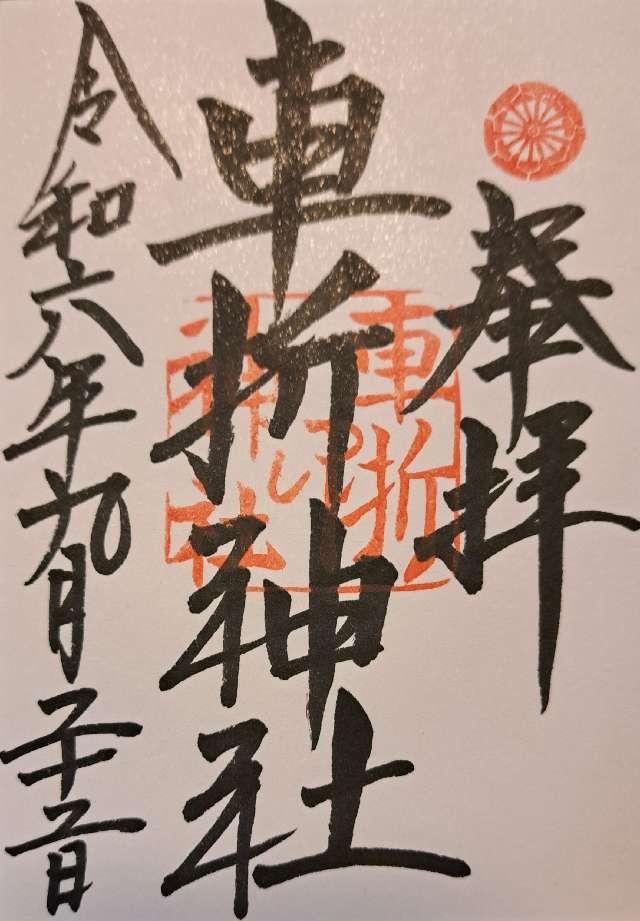 奉拝
車折神社
令和六年九月
車折
神社